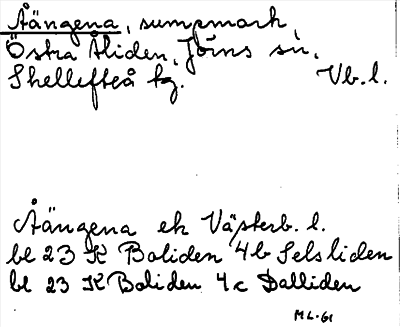 Åängena, sumpmark,
Östra Åliden, Jörns sn,
Skellefteå tg. Vb. l.
Åängena ek Västerb. l.
bl 23 K Boliden 4b Selsliden
bl 23 K Boliden 4c Dalliden
ML-61